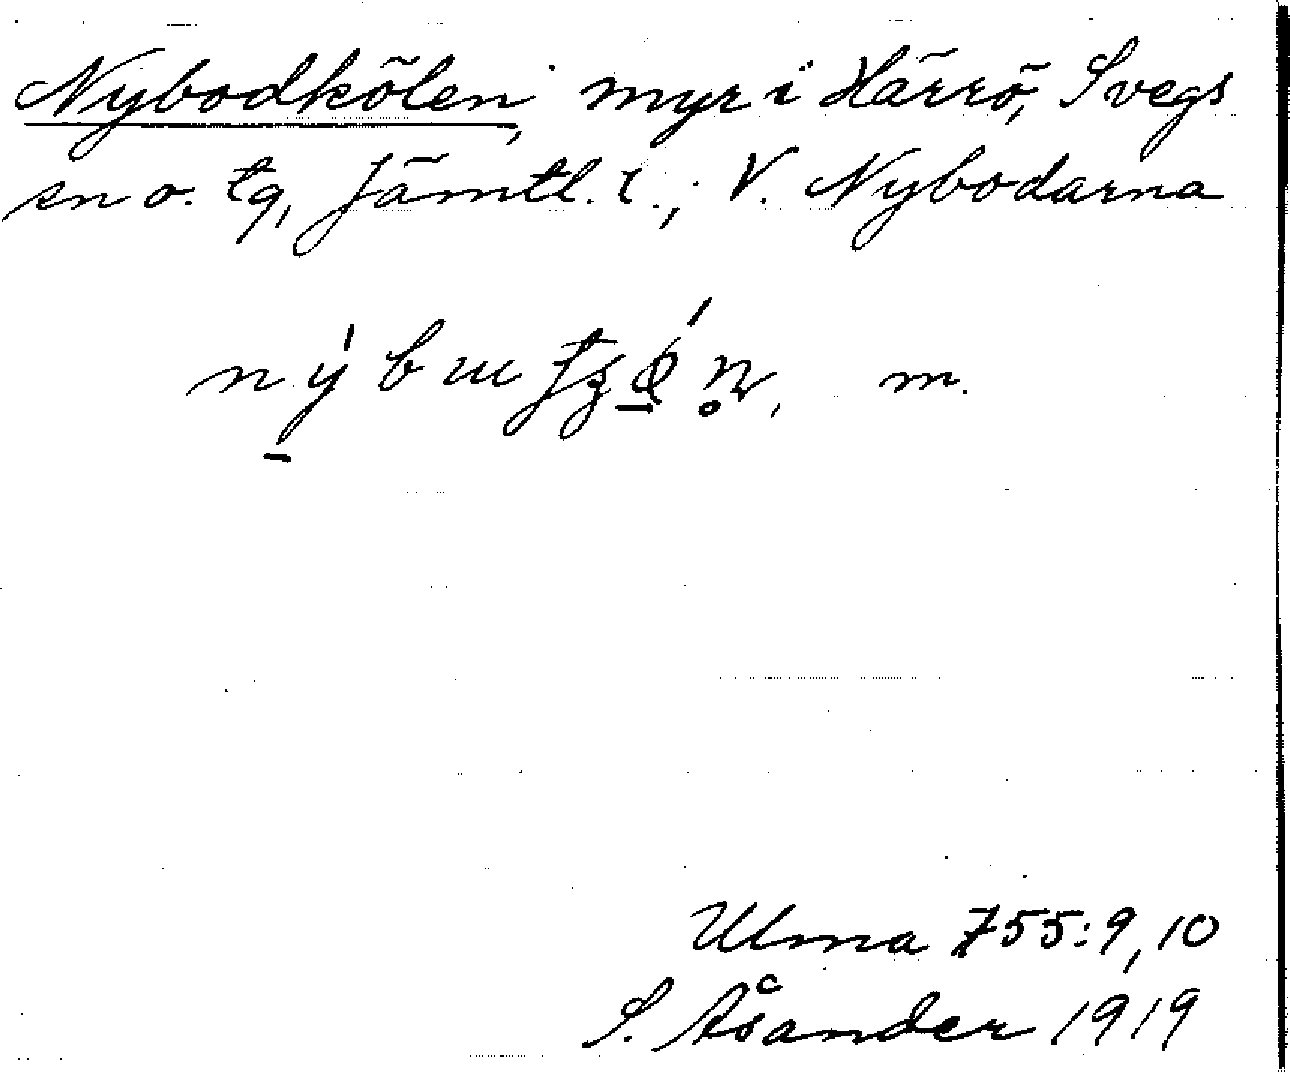 Nybodkölen, myr i Härrö, Svegs
sn o. tg, Jämtl. l.; V. Nybodarna
m.
Ulma 755:9,10
S. Åsander 1919